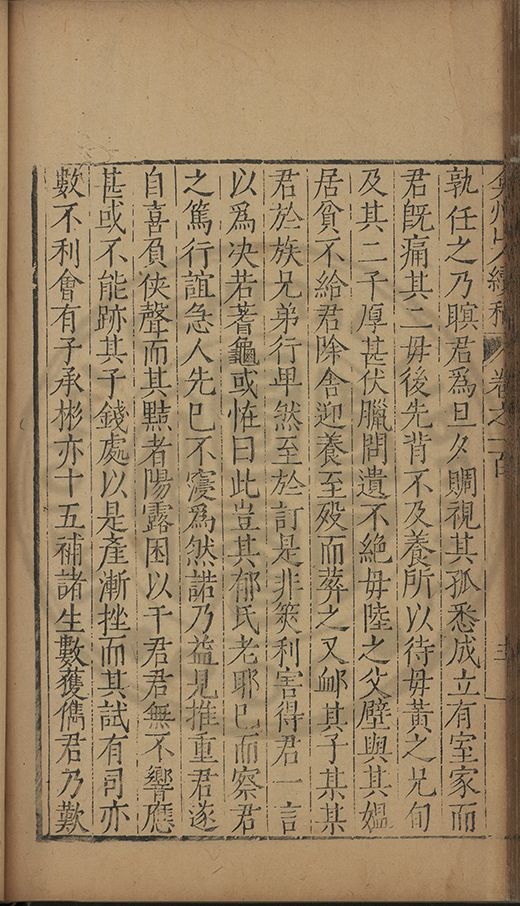 弇州山人續稿 卷之一百
孰任之乃瞑君爲旦夕賙視其孤悉成立有室家而
君旣痛其二毋後先背不及養所以待毋黃之兄旬
及其二千厚甚伏臘問遺不絶毋陸之父壁與其媼
居貧不給君除舍迎養至殁而葬之又衈其子某某
君於族兄弟行甲然至於訂是非筴利害得君一言
以爲决若蓍龜或恠曰此豈其郁氏老耶巳而察君
之篤行誼急人先巳不寖爲然諾乃益見推重君遂
自喜負俠聲而其黠者陽露困以干君君無不響應
甚或不能跡其子錢處以是產漸挫而其試有司亦
數不利會有子承彬亦十五補諸生數獲儁君乃歎